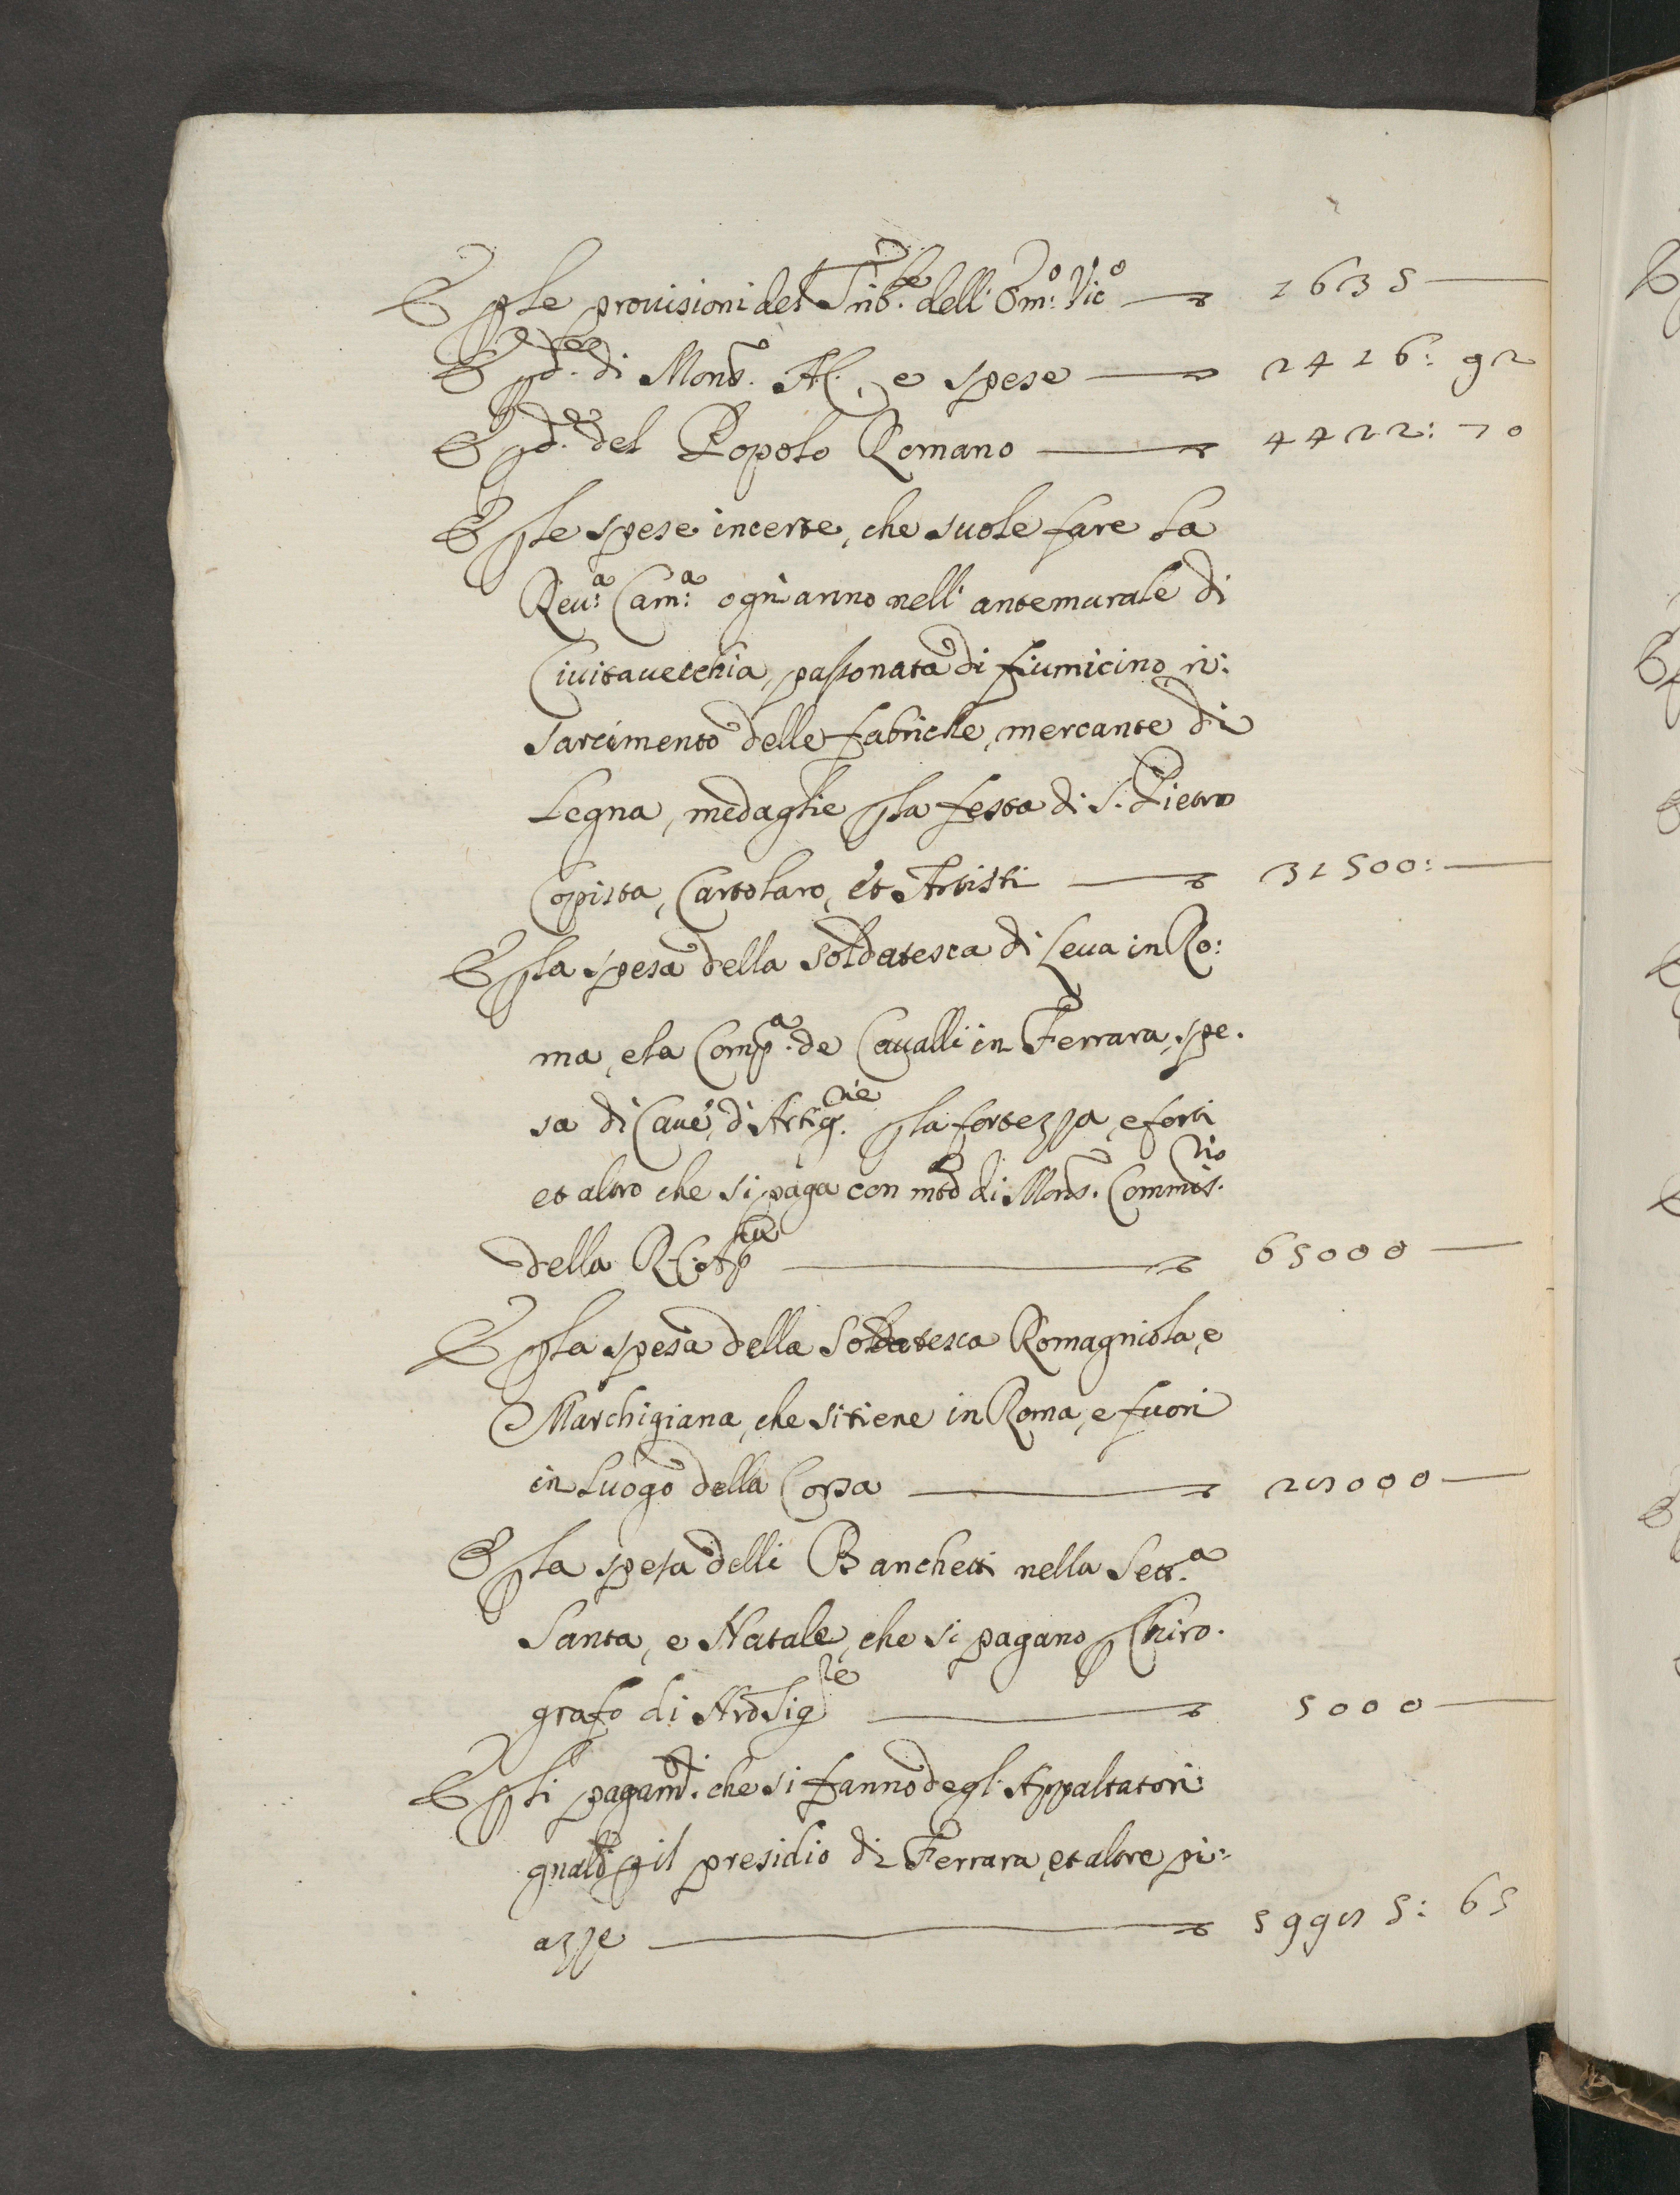 E p le prouisioni del Trib.le dell' Em:o Vic.o — 1635 —
E p d.e di Mons.r Al., e spese — 2416: 92
E p d.e del Popolo Romano — 4422: 70
E p le spese incerte, che suole fare la
Reu:a Cam:a ogn'anno nell' antemurale di
Ciuitauecchia, passonata di fiumicino, ri:
sarcimento delle fabriche, mercante di
Legna, medaglie p la festa di S. Pietro
Copista, Cartolaro, et Artisti — 31500: —
E p la spesa della soldatesca di Leua in Ro:
ma, e la Comp.a de Caualli in Ferrara, spe.
sa di Caue, d'Artig.rie p la fortezza, e forti
et altro che si paga con mtd di Mons.r Commis.rio
della R. C. Ap.lica — 65000 —
E p la spesa della Soldatesca Romagniola, e
Marchigiana, che si tiene in Roma, e fuori
in luogo della Corsa — 25000 —
E p la spesa delli Banchetti nella Sett.a
Santa, e Natale, che si pagano p Chiro.
grafo di Nro Sig.re — 5000 —
E p li pagam.ti che si fanno degl'Appaltatori
p il presidio di Ferrara, et altre pi:
azze — 65